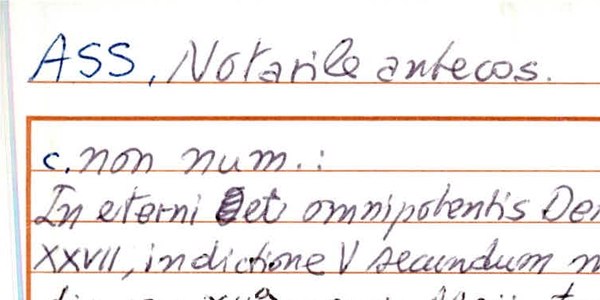 ASS, Notarile antecos.
c. non num.:
In eterni et omnipotentis Dei
XXVII, indictione V secundum